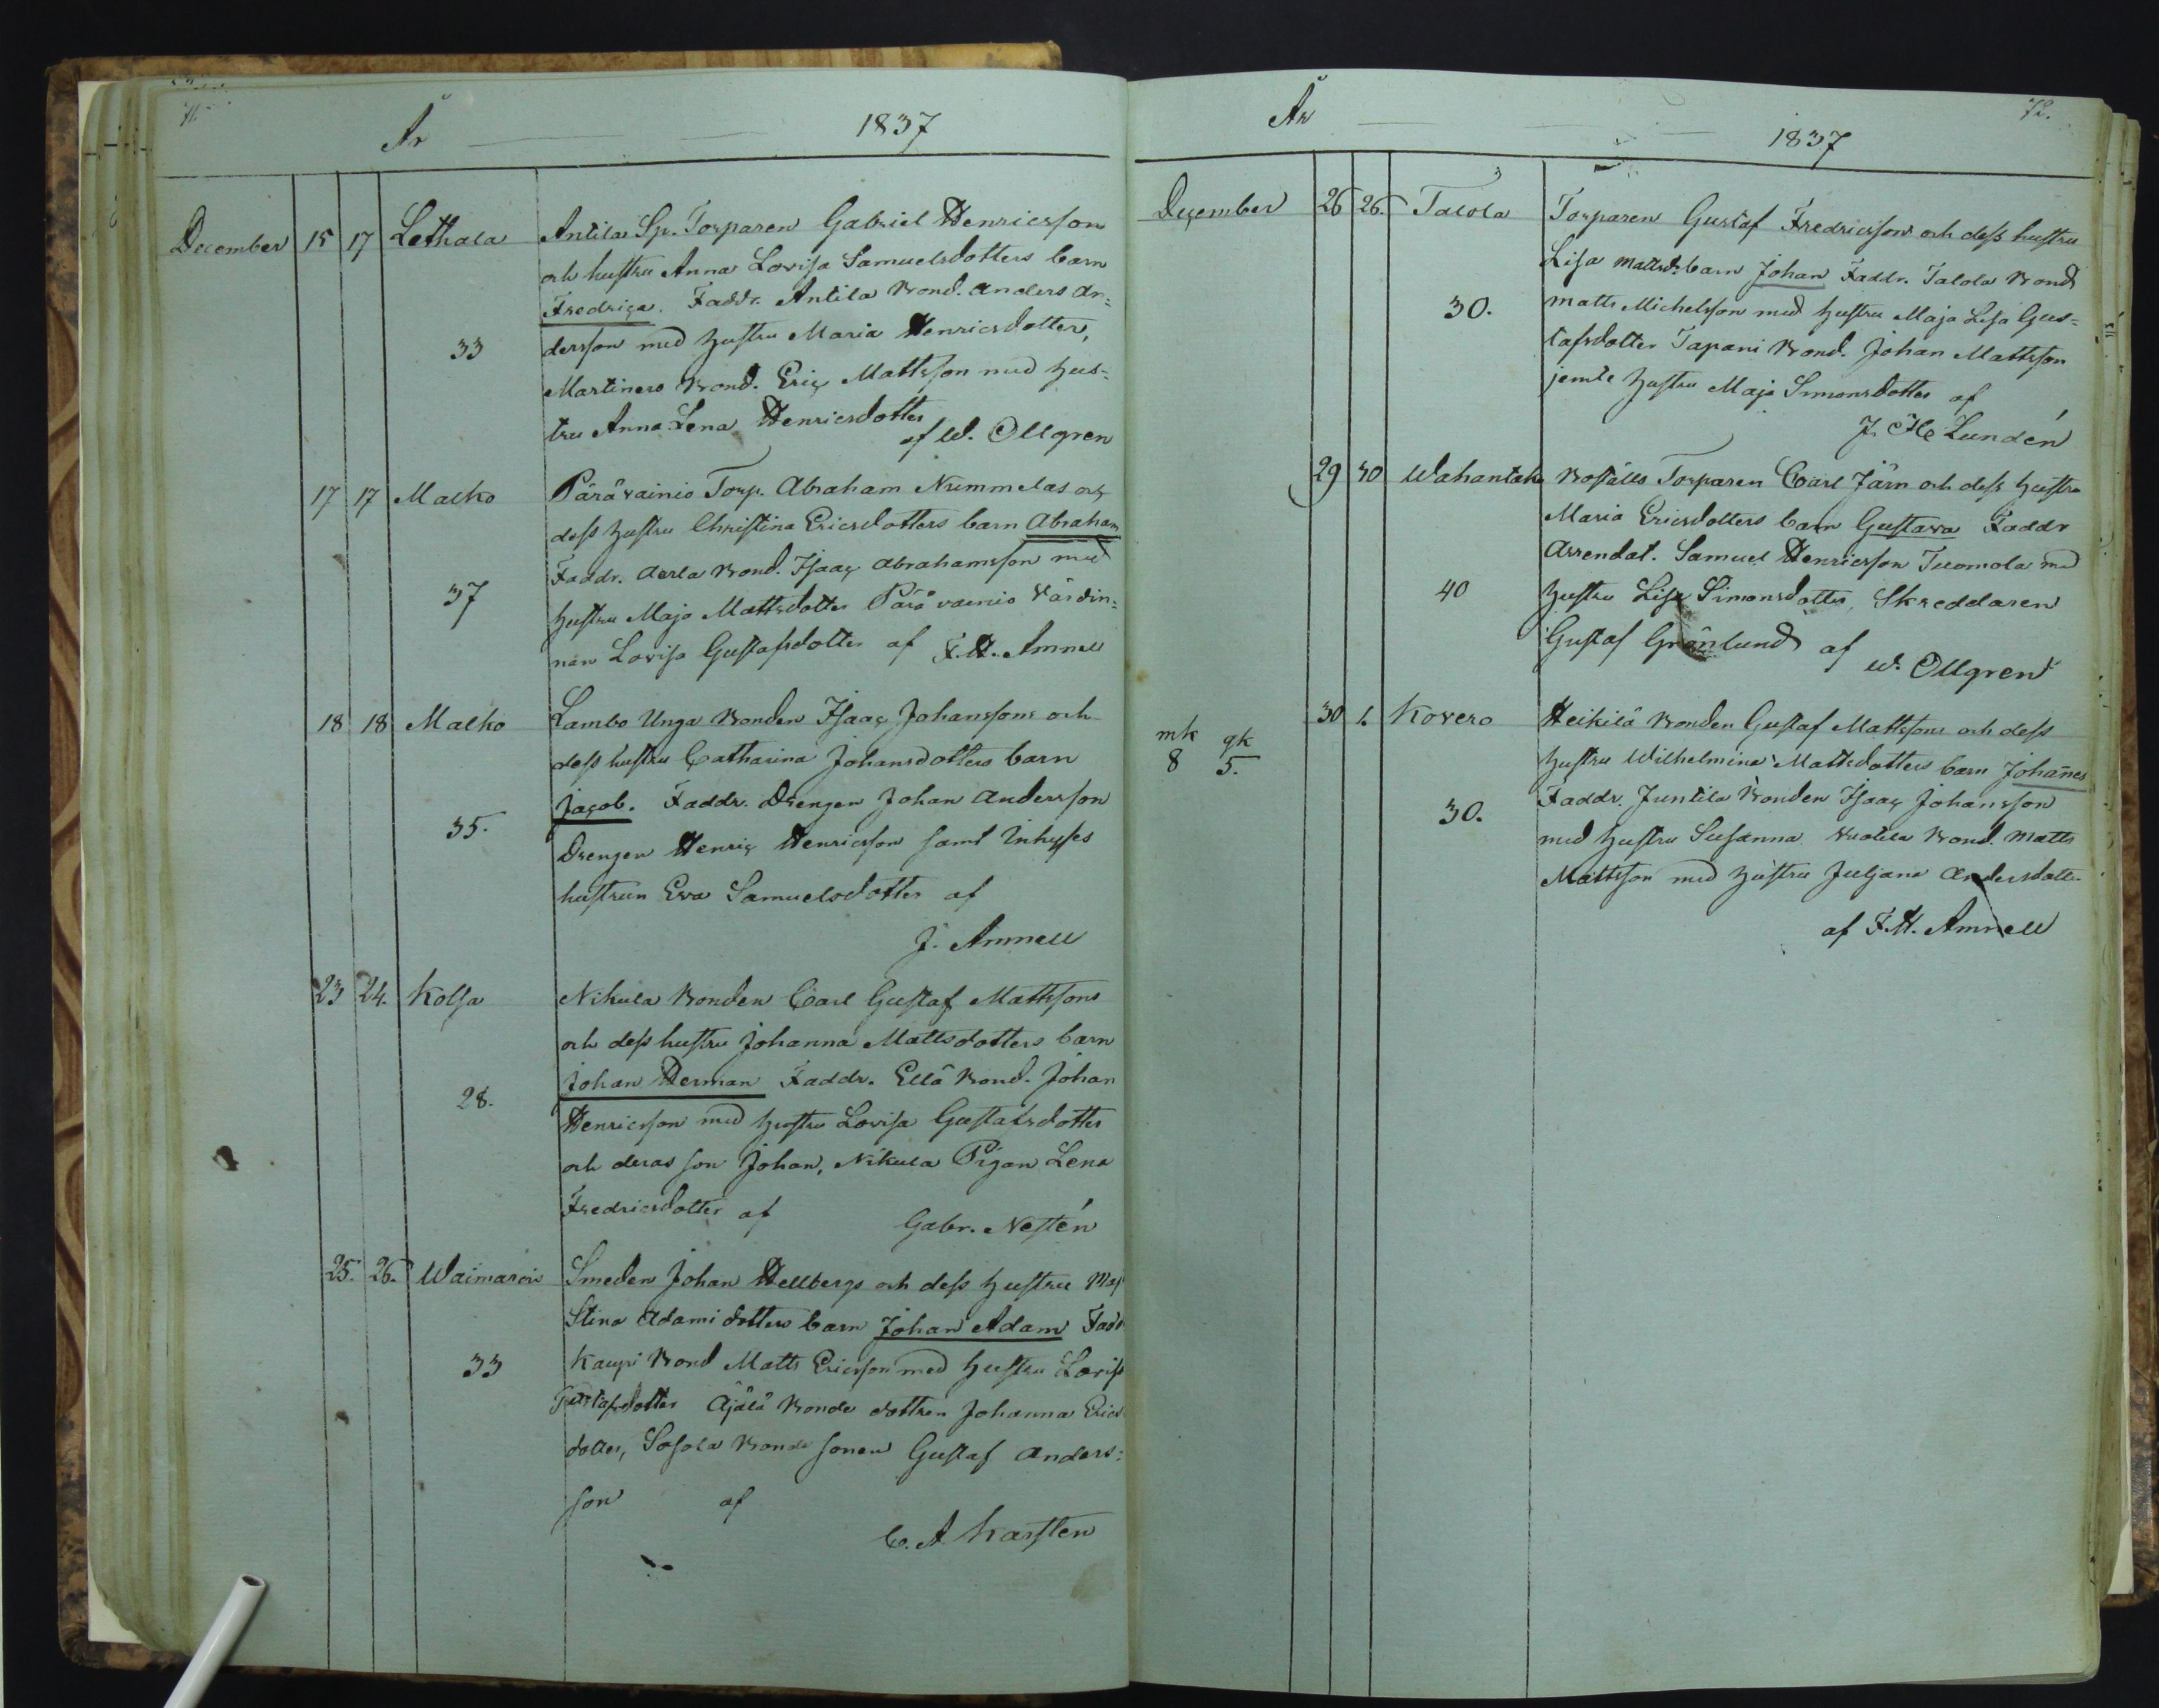 71.
År 1837
December 15 17 Lethala Antila Sp. Torparen Gabriel Henricsson
och hustru Anna Lovisa Samuelsdotters barn
Fredrica. Faddr. Antila Bond. Anders An=
33 dersson med hustru Maria Henricsdotter,
Martinero Bond. Eric Mattsson med hus=
tru Anna Lena Henricsdotter
af W. Ollgren
17 17 Malko Pärävainio Torp. Abraham Nummelas och
dess hustru Christina Ericsdotters barn Abraham
Faddr. Aerla Bond. Isaac Abrahamsson med
37 hustru Maja Mattsdotter Pärävainio Värdin=
nan Lovisa Gustafsdotter af F.H. Amnell
18 18 Malko Lambo Unga Bonden Isaac Johanssons och
dess hustru Catharina Johansdotters barn
Jacob. Faddr. Drengen Johan Andersson
35. Drengen Henric Henricsson samt Inhyses
hustrun Eva Samuelsdotter af
J. Amnell
23 24. Kolsa Nikula Bonden Carl Gustaf Mattsons
och dess hustru Johanna Mattsdotters barn
Johan Herman Faddr. Ellä Bond. Johan
28. Henricsson med hustru Lovisa Gustafsdotter
och deras son Johan, Nikula Pigan Lena
Fredricsdotter af
Gabr. Nestén
25. 26. Waimaroin Smeden Johan Hellbergs och dess hustru Maj
Stina Adamidotters barn Johan Adam Fadd
33 Kaupi Bond Matts Ericsson med hustru Lovis
Gustafsdotter Äjälä Bonde dottren Johanna Erics
dotter, Sosola Bonde sonen Gustaf Anders=
son af
C. A. Karsten
72.
År 1837
December 26 26. Talola Torparen Gustaf Fredricssons och dess hustru
Lisa Mattsd. barn Johan Faddr. Talola Bond
30. Matts Michelsson med hustru Maja Lisa Gus=
tafsdotter Tapani Bond. Johan Mattsson
jemte hustru Maja Simonsdotter af
J. H. Lundén
29 30 Wahantak Boställs Torparen Carl Järn och dess hustru
Maria Ericsdotters barn Gustava Faddr
Arrendat. Samuel Henricsson Tuomola med
40 hustru Lisa Simonsdotter, Skreddaren
Gustaf Grönlund af
W. Ollgren
30 1. Kovero Heikilä Bonden Gustaf Mattssons och dess
mk gk
8 5.
hustru Wilhelmina Mattsdotters barn Johanes
30. Faddr. Juntila Bonden Isaac Johansson
med hustru Susanna Bond. Matts
Mattsson med hustru Juljana Andersdotter
af F.H. Amnell